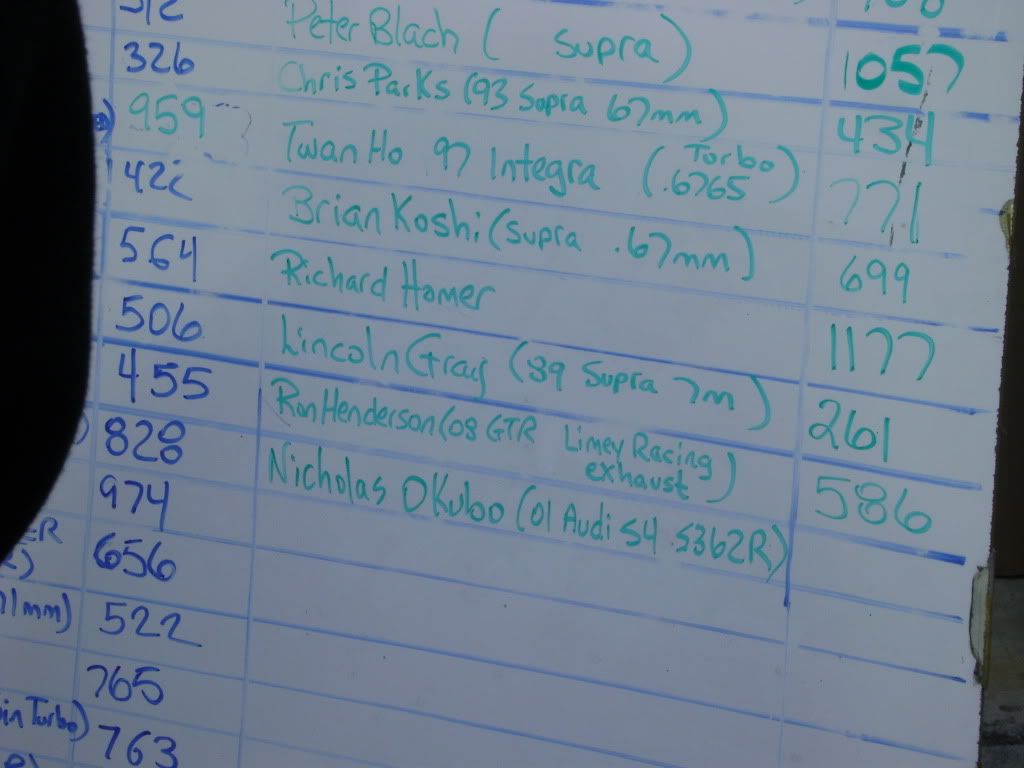 Peter Blach ( Supra ) 1057
326 Chris Parks (93 Supra 67mm) 434
959 Twan Ho 97 Integra (Turbo .6765) 771
422 Brian Koshi (supra .67mm) 699
564 Richard Homer 1177
506 Lincoln Gray (89 Supra 7m) 261
455 Ron Henderson (08 GTR Limey Racing exhaust) 586
828 Nicholas OKubo (01 Audi S4 S362R)
974
ER
656
mm) 522
765
in Turbo) 763